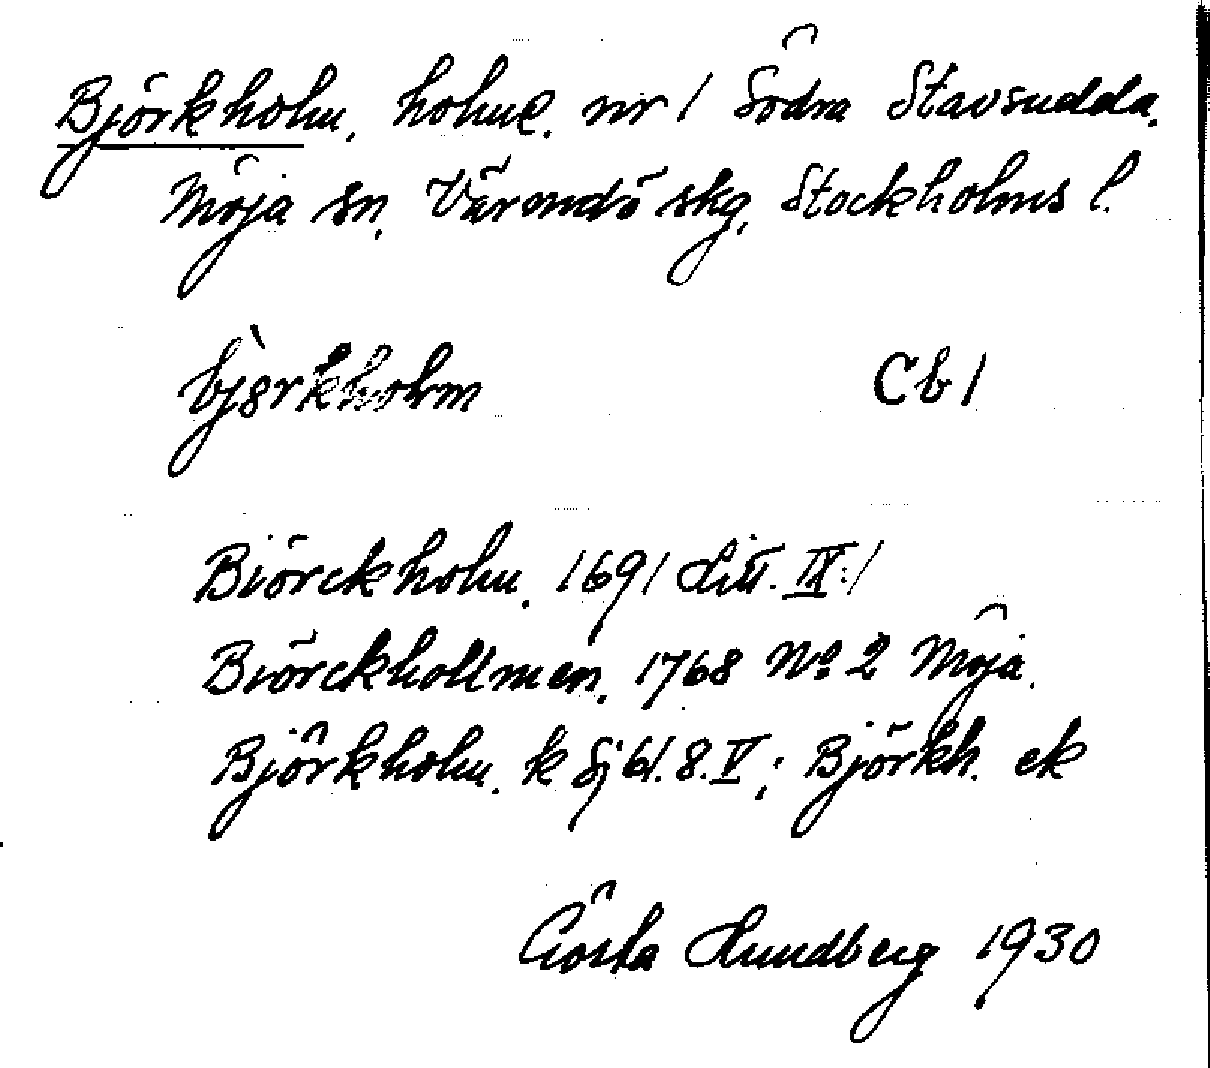 Björkholm, holme. nr 1 Södra Stavsudda,
Möja sn, Värmdö skg, Stockholms l.
bjɵ̀rkholm Cb 1
Biörckholm, 1691 Litt. IX:1
Biörckhollmen, 1768 No 2 Möja.
Björkholm, k Sj 61. 8. V; Björkh. ek
Gösta Lundberg 1930